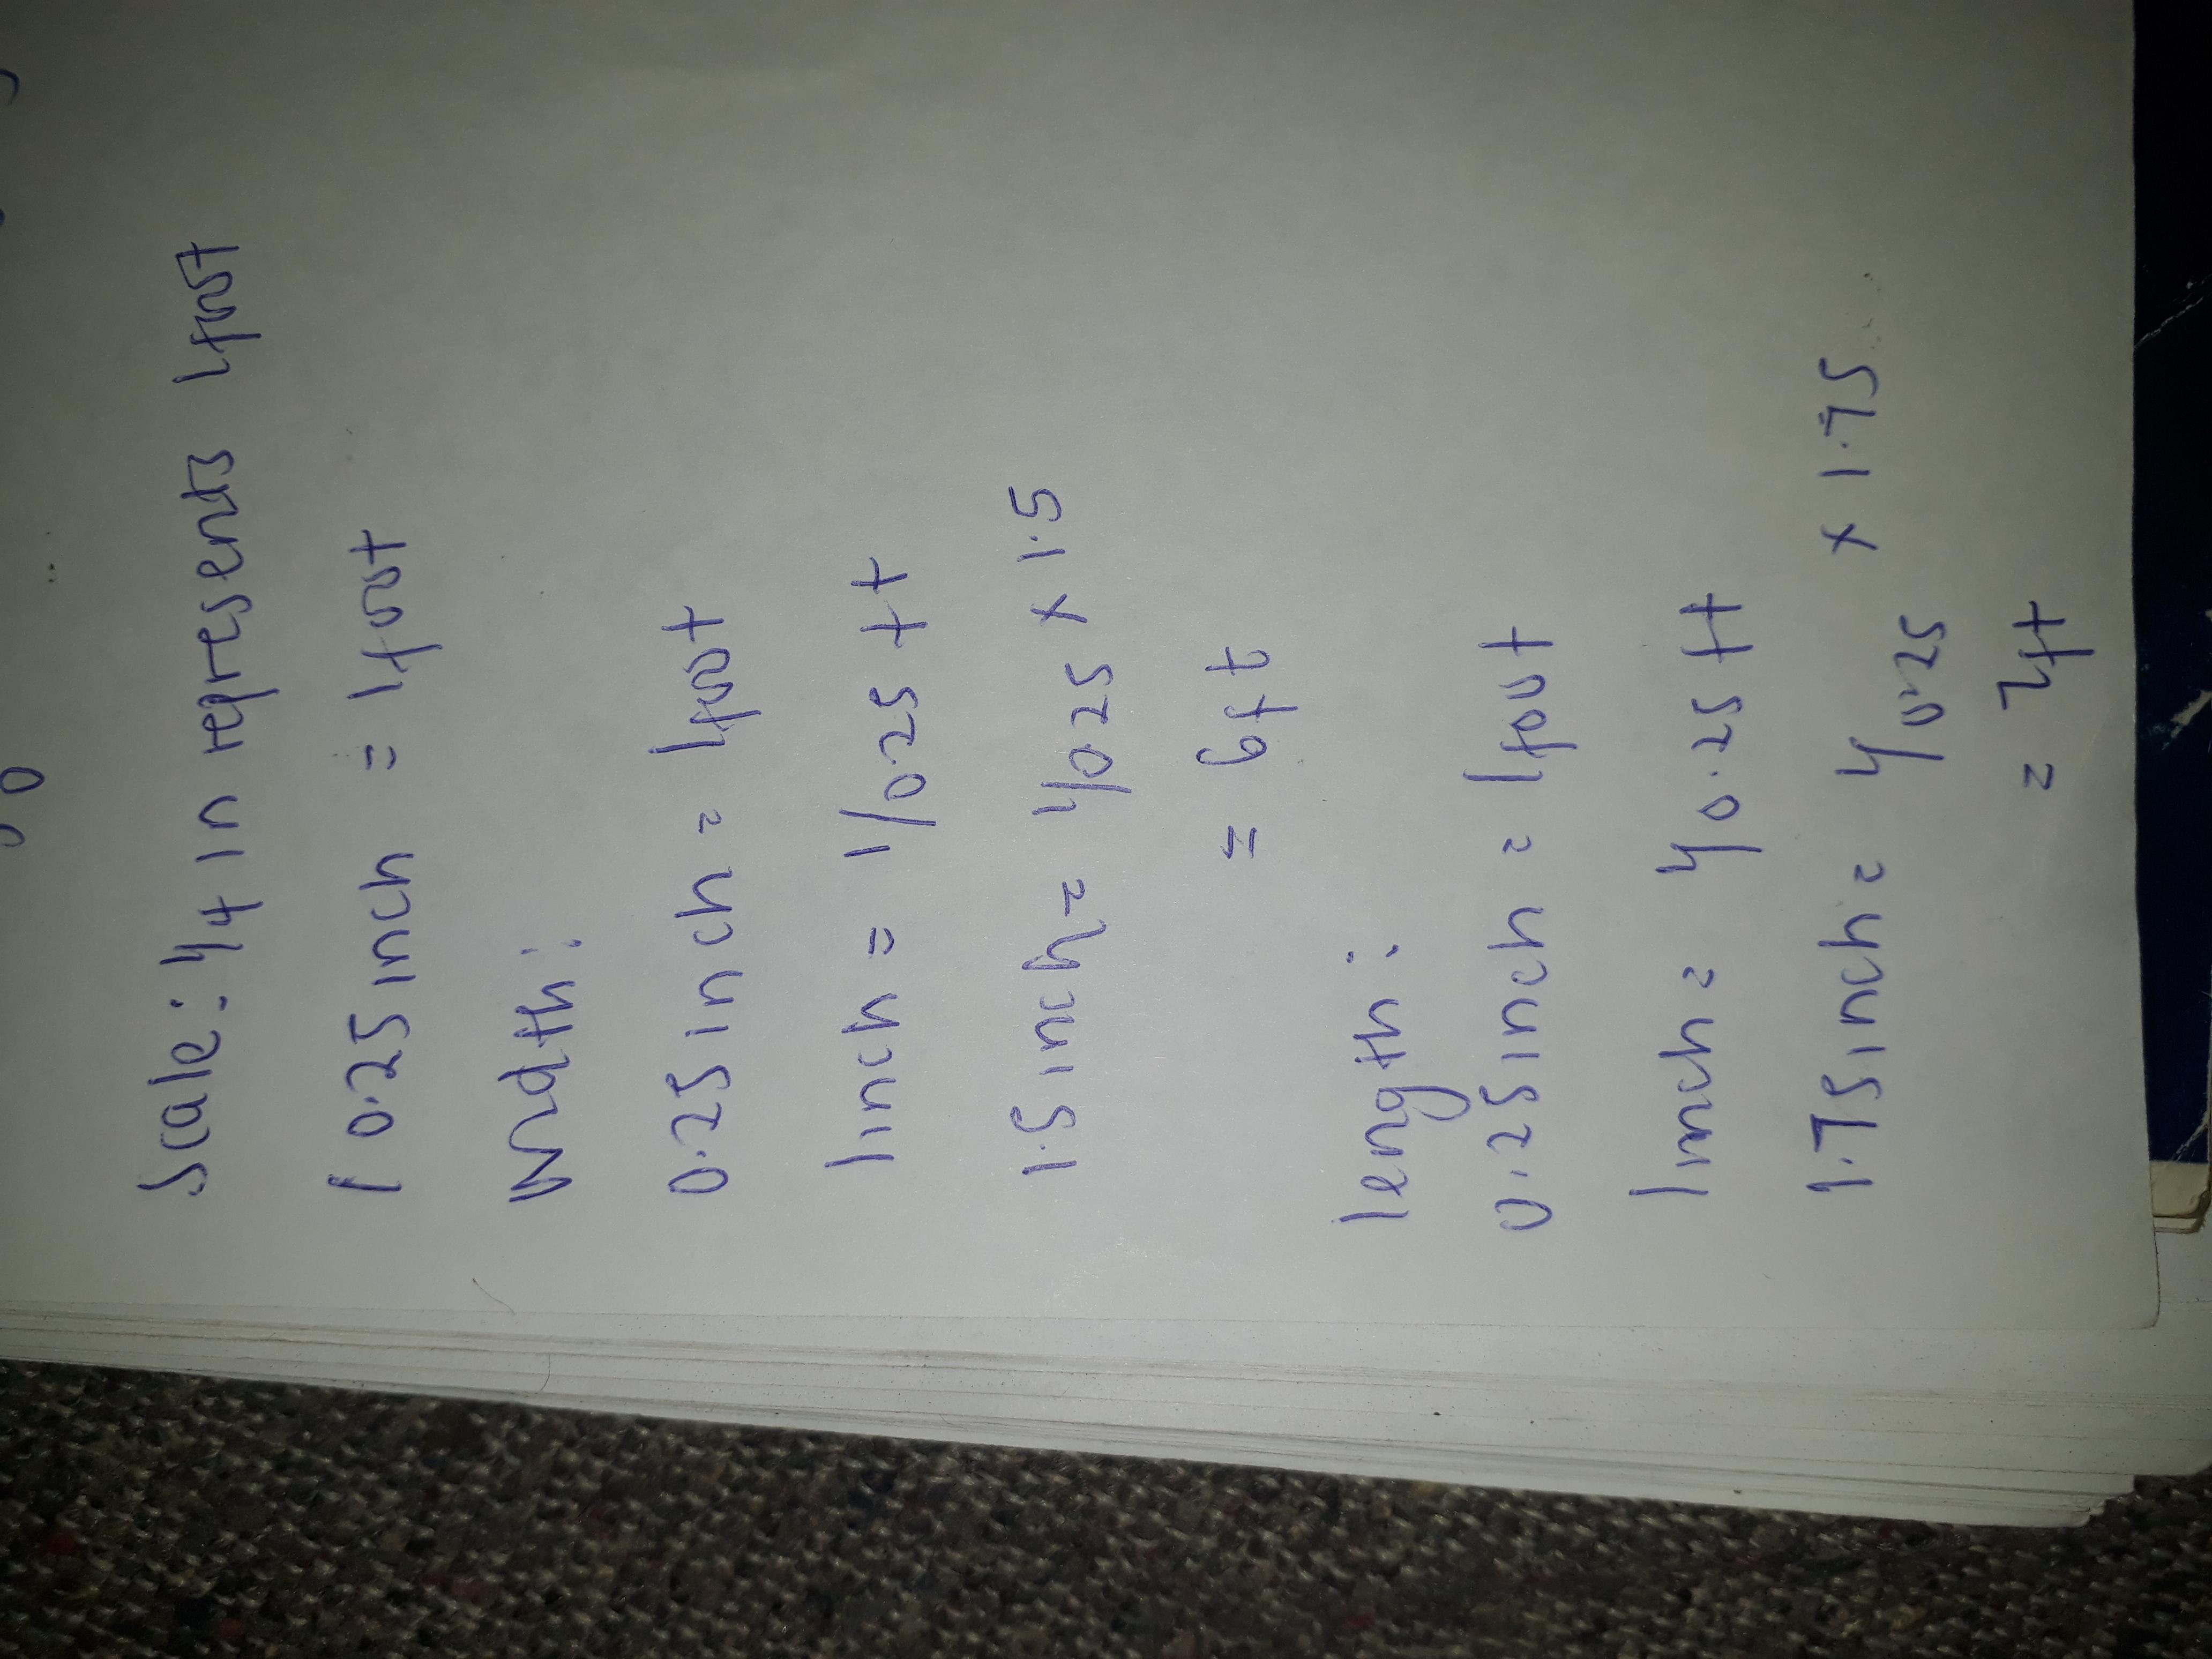 Scale: 1/4 in represents 1 foot
0.25 inch = 1 foot
Width:
0.25 inch = 1 foot
1 inch = 1/0.25 ft
1.5 inch = 1/0.25 x 1.5
= 6ft
length:
0.25 inch = 1 foot
1 inch = 1/0.25 ft
1.75 inch = 1/0.25 x 1.75
= 7ft